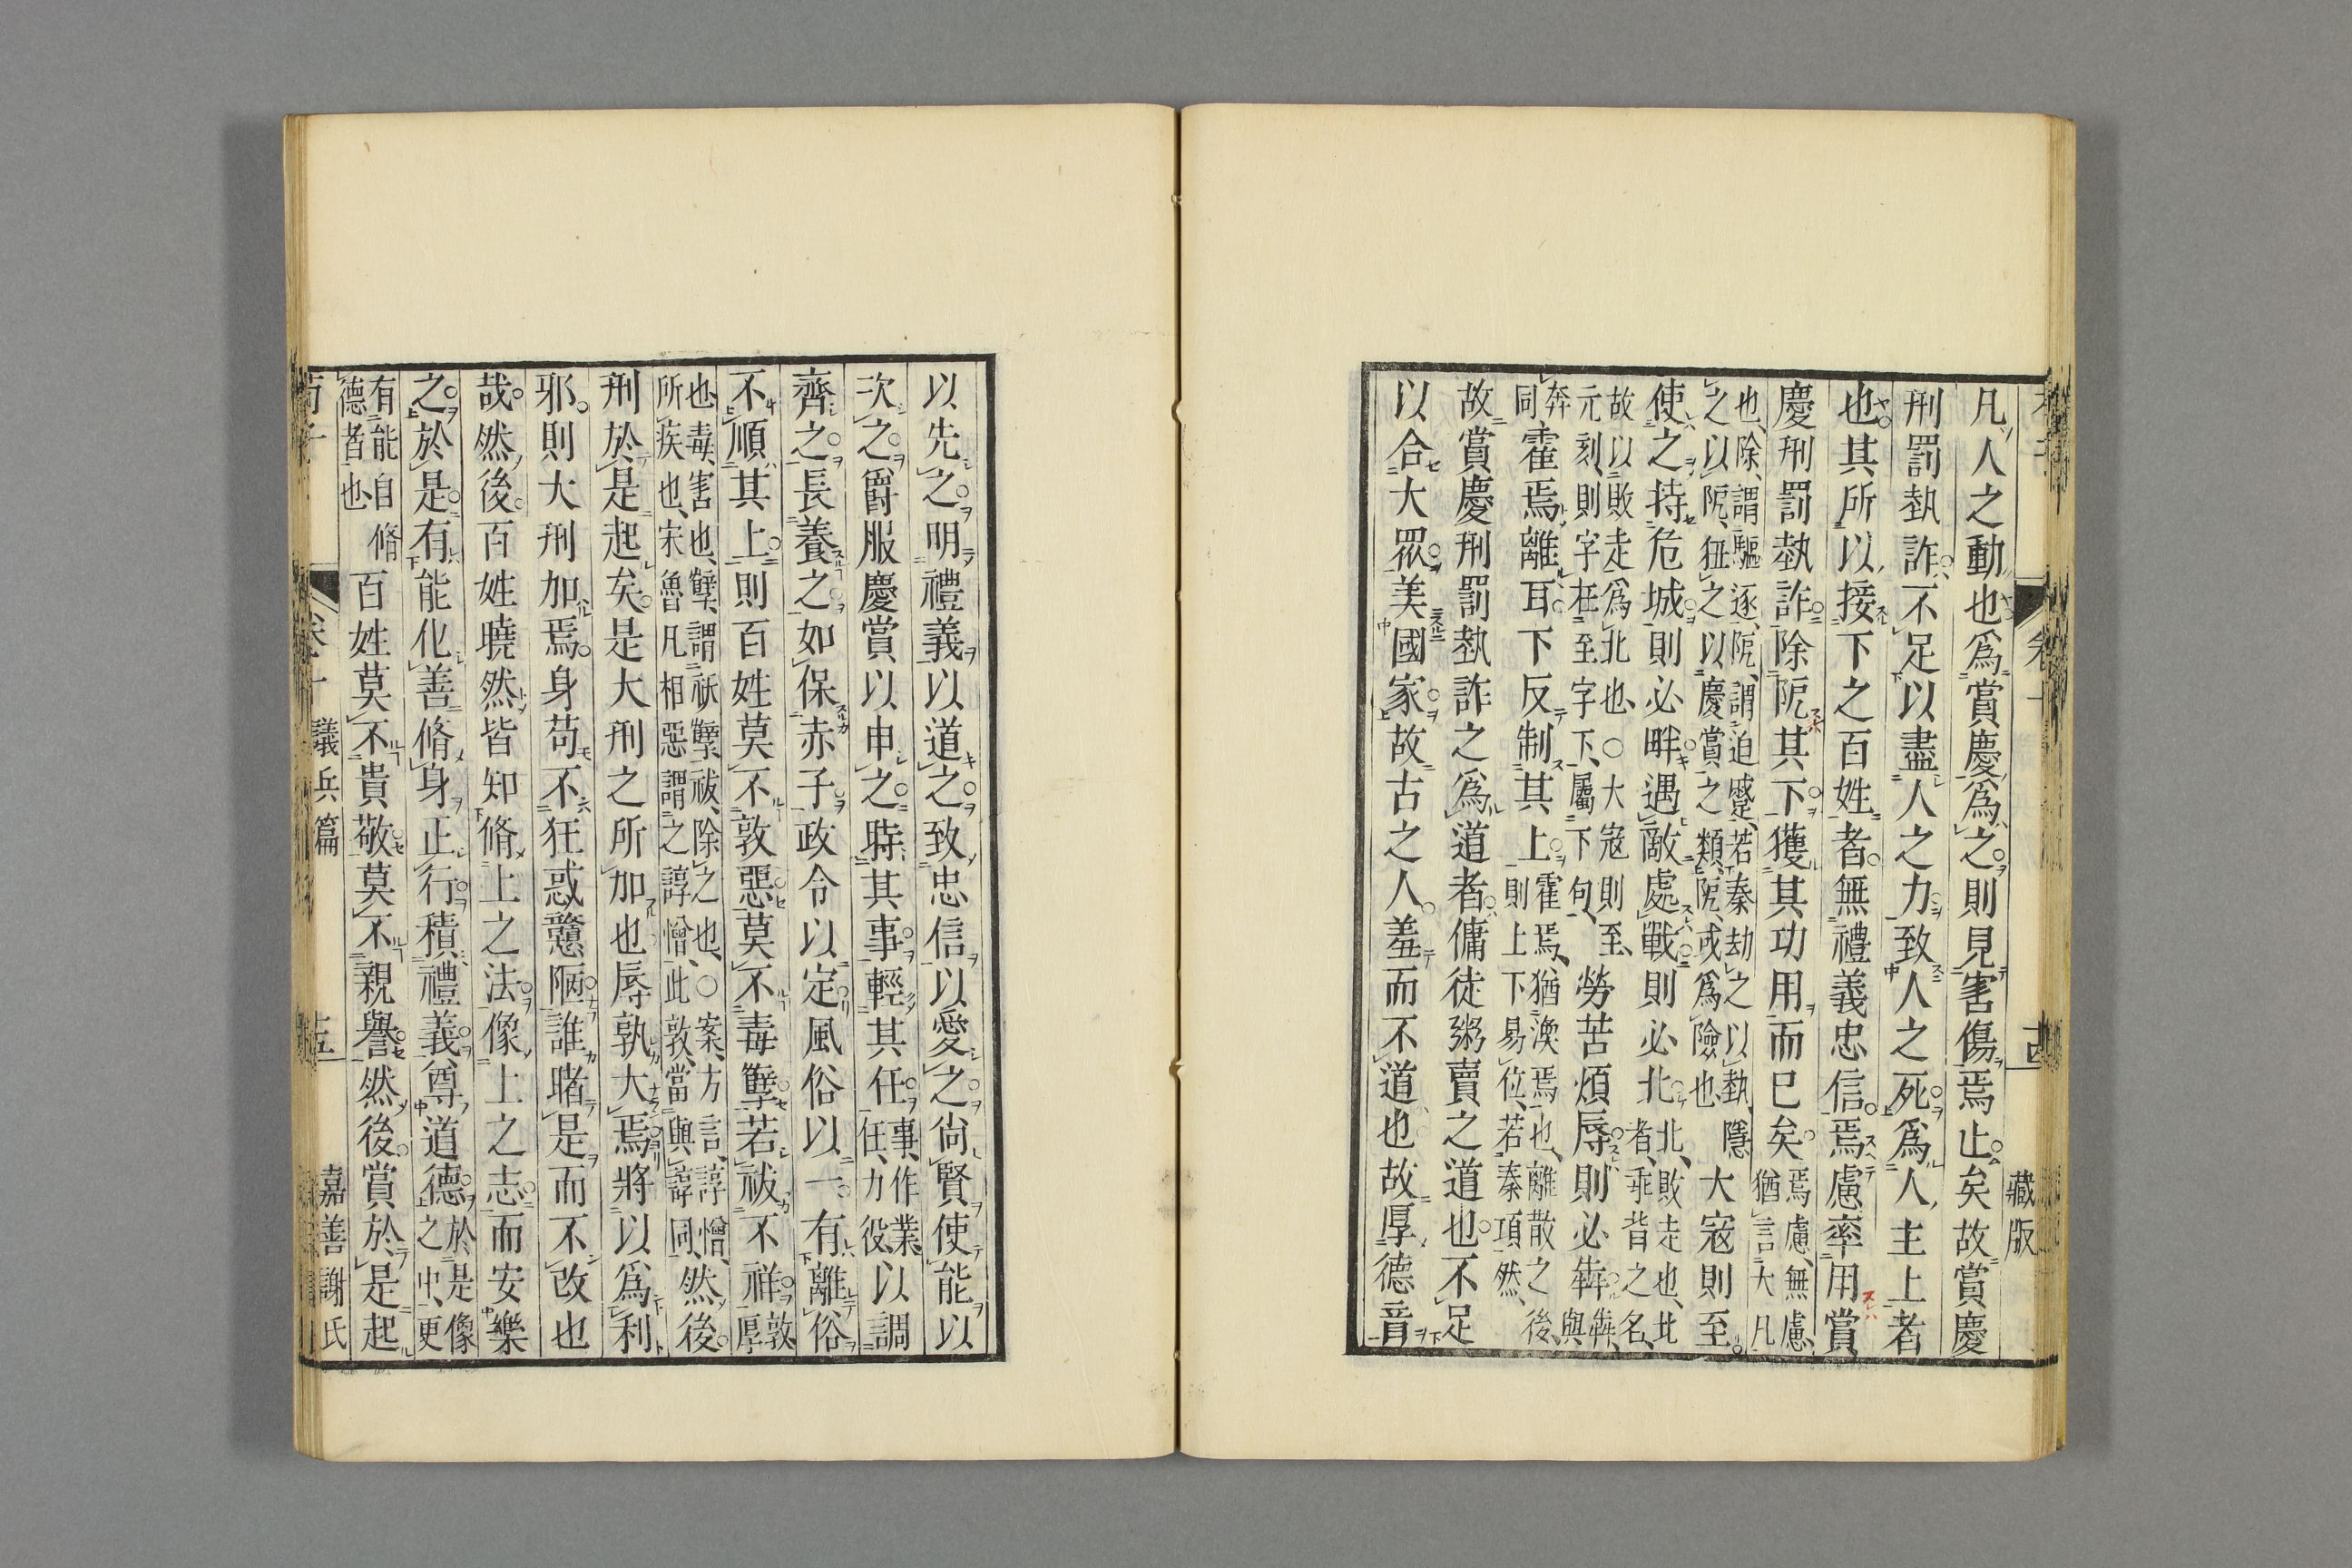 凡人之動也爲賞慶爲之則見害傷焉止矣故賞慶
刑罰埶詐不足以盡人之力致人之死爲人主上者
也其所以接下之百姓者無禮義忠信焉慮率用賞
慶刑罰埶詐除阸其下獲其功用而已矣焉慮、無慮、猶言大凡
也、除、謂驅逐、阸、謂迫蹙、若秦劫之以埶、隱
之以阸、狃之以慶賞之類、阸、或爲險也、大寇則至
使之持危城則必畔遇敵處戰則必北北、敗走也、北者、乖背之名、
故以敗走爲北也、○大寇則至、
元刻、則字在至字下、屬下句、勞苦煩辱則必犇犇、與
奔同霍焉離耳下反制其上霍焉、猶渙焉也、離散之後、則上下易位、若秦項然、
故賞慶刑罰埶詐之爲道者傭徒粥賣之道也不足
以合大眾美國家故古之人羞而不道也故厚德音
藏版
以先之明禮義以道之致忠信以愛之尙賢使能以
次之爵服慶賞以申之時其事輕其任事、作業、任、力役、以調
齊之長養之如保赤子政令以定風俗以一有離俗
不順其上則百姓莫不敦惡莫不毒孽若祓不祥敦、厚
也、毒、害也、孽、謂袄孽、祓、除之也、○案、方言、諄憎、
所疾也、宋魯凡相惡謂之諄憎、此敦、當與諄同、然後
刑於是起矣是大刑之所加也辱孰大焉將以爲利
邪則大刑加焉身苟不狂惑戇陋誰睹是而不改也
哉然後百姓曉然皆知脩上之法像上之志而安樂
之於是有能化善脩身正行積禮義尊道德於是像之中、更
有能自脩德者也百姓莫不貴敬莫不親譽然後賞於是起
荀子 卷十 議兵篇 十五 嘉善謝氏